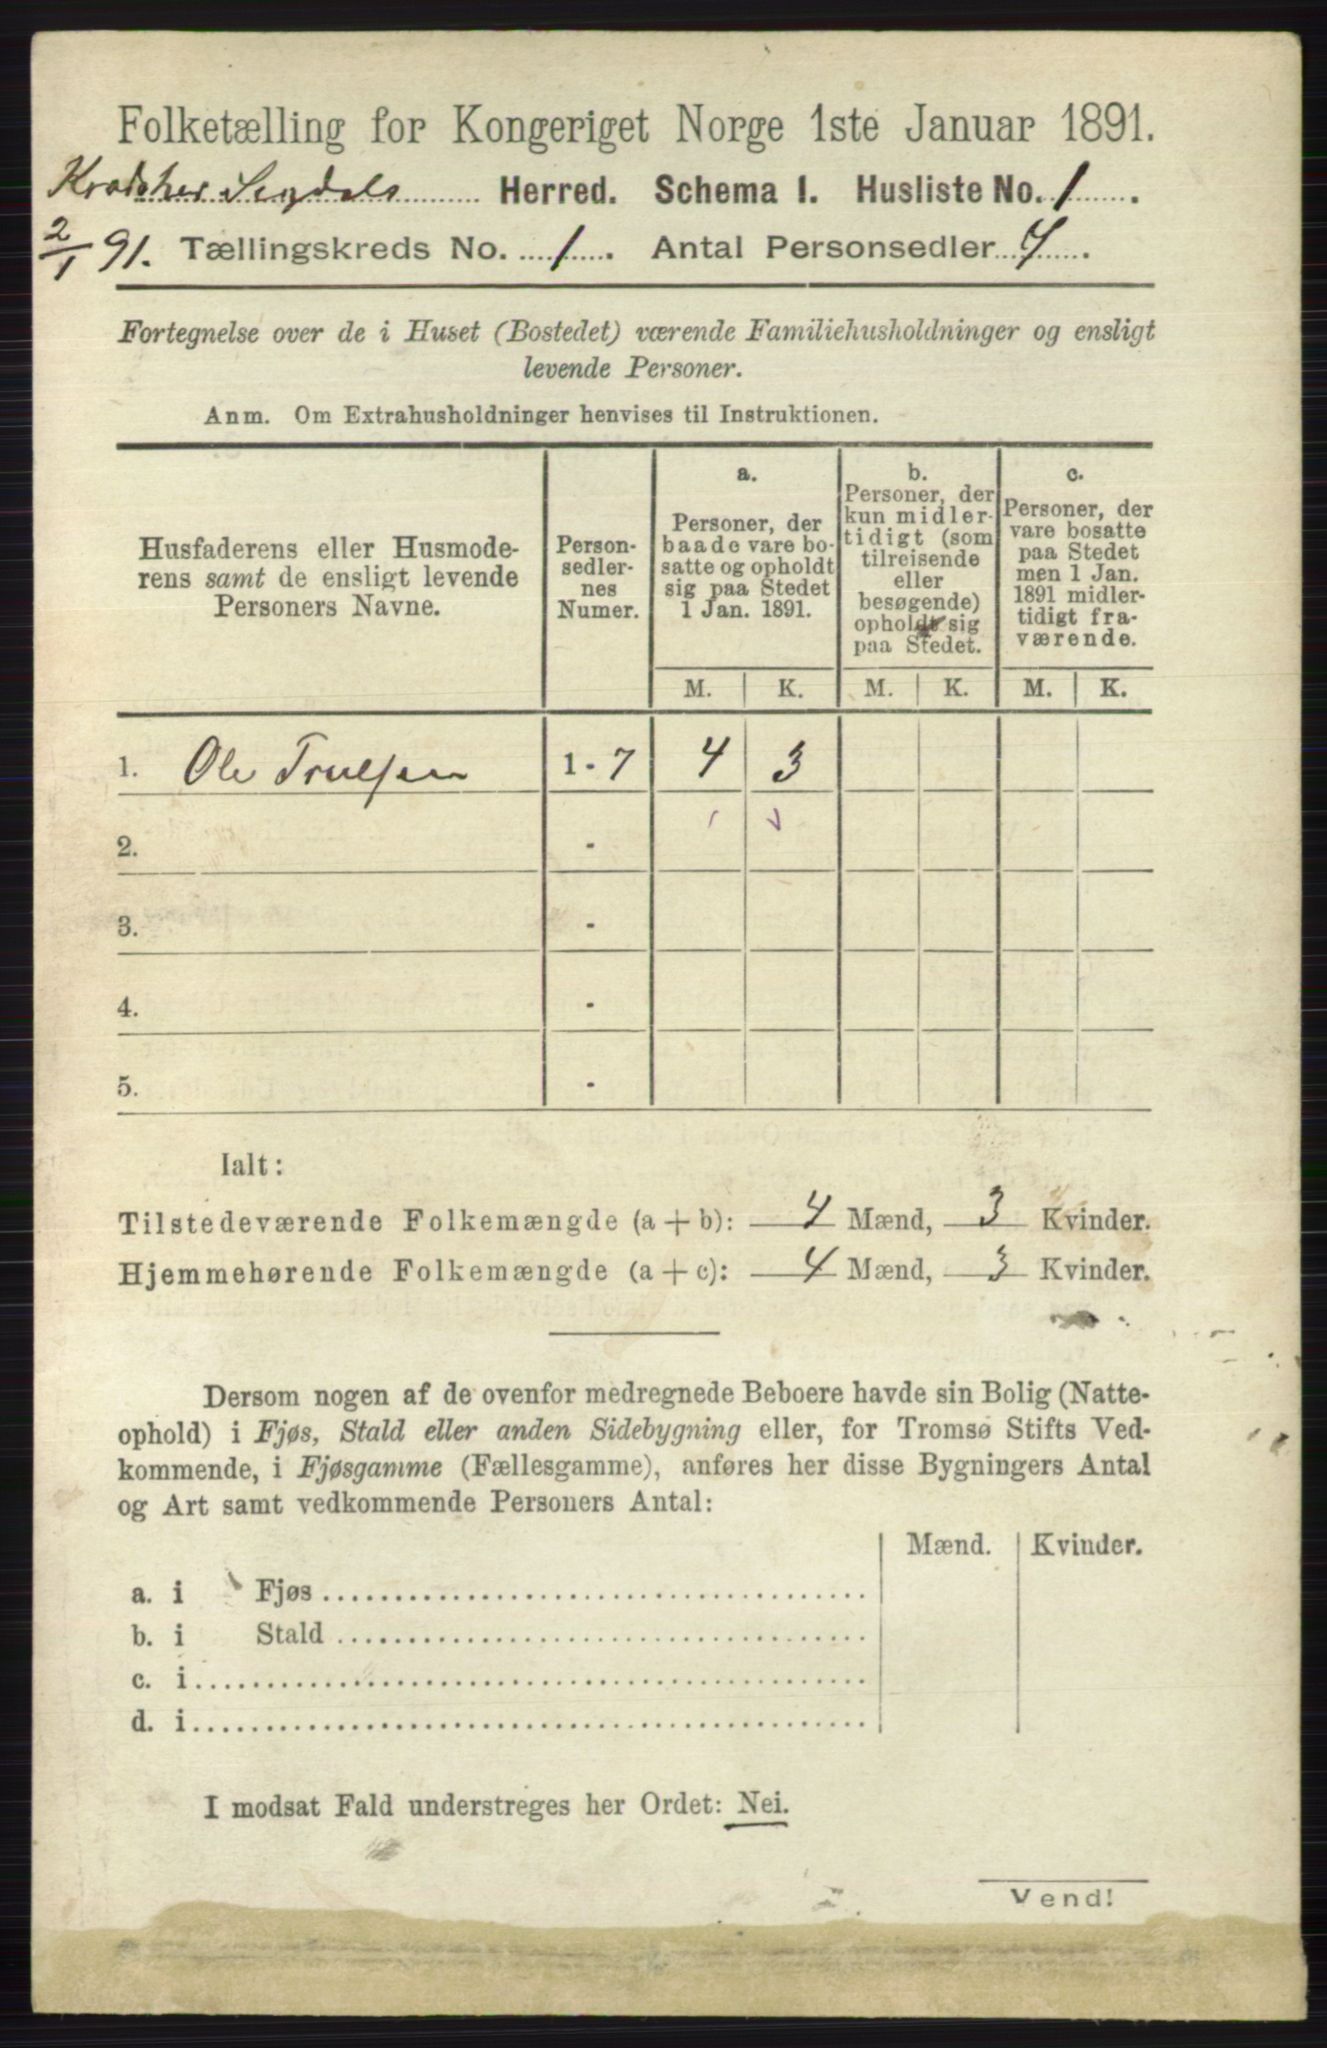 Folketælling for Kongeriget Norge 1ste Januar 1891.
Sigdals Herred. Schema I. Husliste No. 1.
2/1 91. Tællingskreds No. 1. Antal Personsedler 7.
Fortegnelse over de i Huset (Bostedet) værende Familiehusholdninger og ensligt
levende Personer.
Anm. Om Extrahusholdninger henvises til Instruktionen.
Husfaderens eller Husmode-
rens samt de ensligt levende
Personers Navne.
Person-
sedler-
nes
Numer.
a.
Personer, der
baade vare bo-
satte og opholdt
sig paa Stedet
1 Jan. 1891.
b.
Personer, der
kun midler-
tidigt (som
tilreisende
eller
besøgende)
opholdt sig
paa Stedet.
c.
Personer, der
vare bosatte
paa Stedet
men 1 Jan.
1891 midler-
tidigt fra-
værende.
M. K. M. K. M. K.
1. Ole Trulsen 1 - 7 4 3
2. -
3. -
4. -
5. -
Ialt:
Tilstedeværende Folkemængde (a + b): 4 Mænd, 3 Kvinder.
Hjemmehørende Folkemængde (a + c): 4 Mænd, 3 Kvinder.
Dersom nogen af de ovenfor medregnede Beboere havde sin Bolig (Natte-
ophold) i Fjøs, Stald eller anden Sidebygning eller, for Tromsø Stifts Ved-
kommende, i Fjøsgamme (Fællesgamme), anføres her disse Bygningers Antal
og Art samt vedkommende Personers Antal:
Mænd. Kvinder.
a. i Fjøs
b. i Stald
c. i
d. i
I modsat Fald understreges her Ordet: Nei.
Vend!